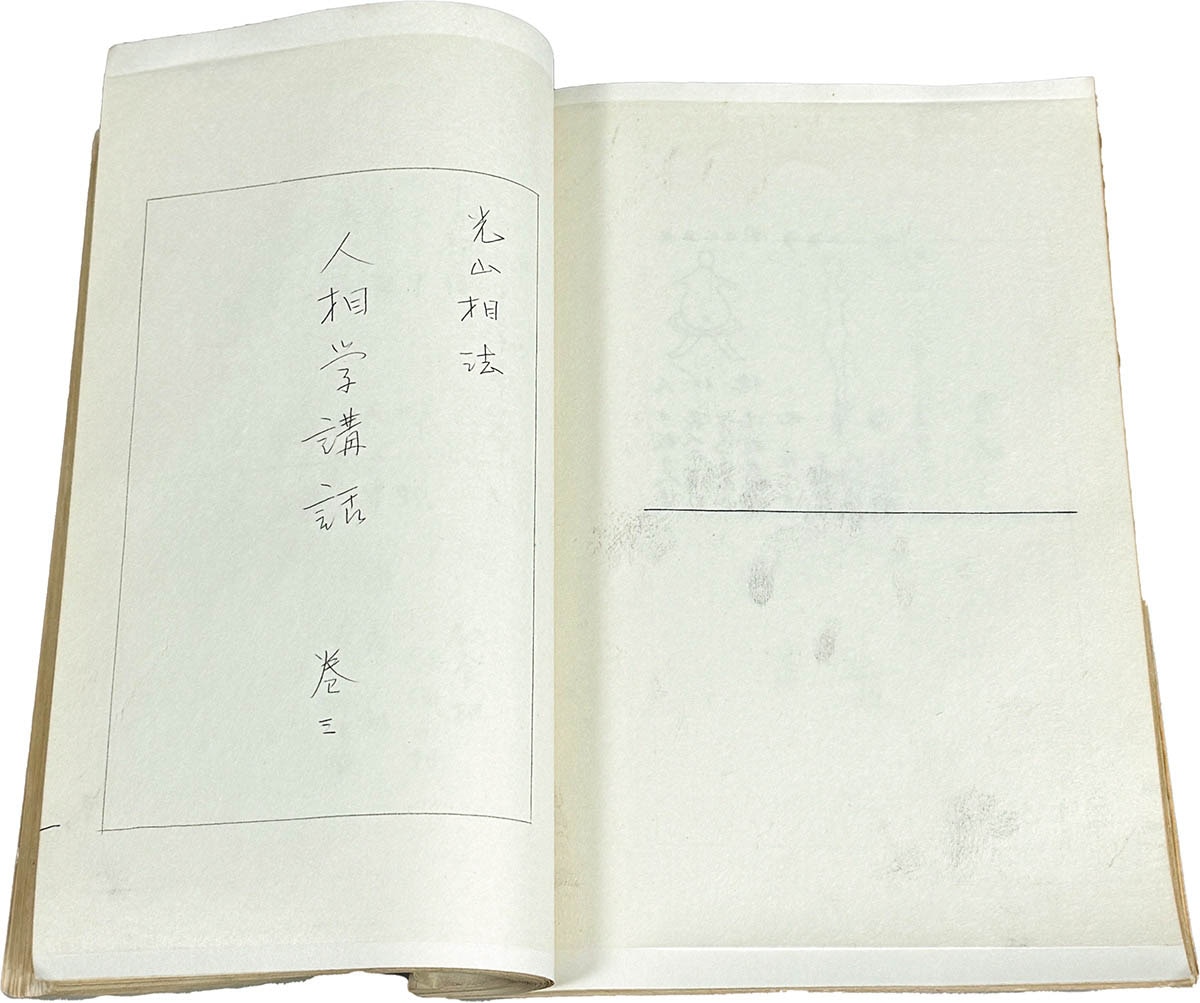 光山相法
人相学講話　巻三